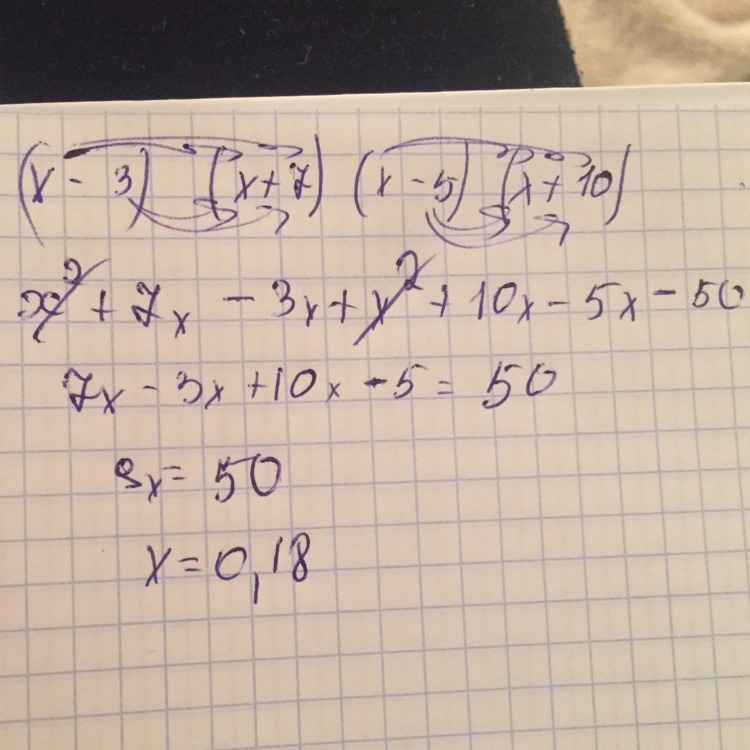 (x - 3) (x + 7) (x - 5) (x + 10)
x² + 7x - 3x + x² + 10x - 5x - 50
7x - 3x + 10x - 5 = 50
9x = 50
x = 0,18